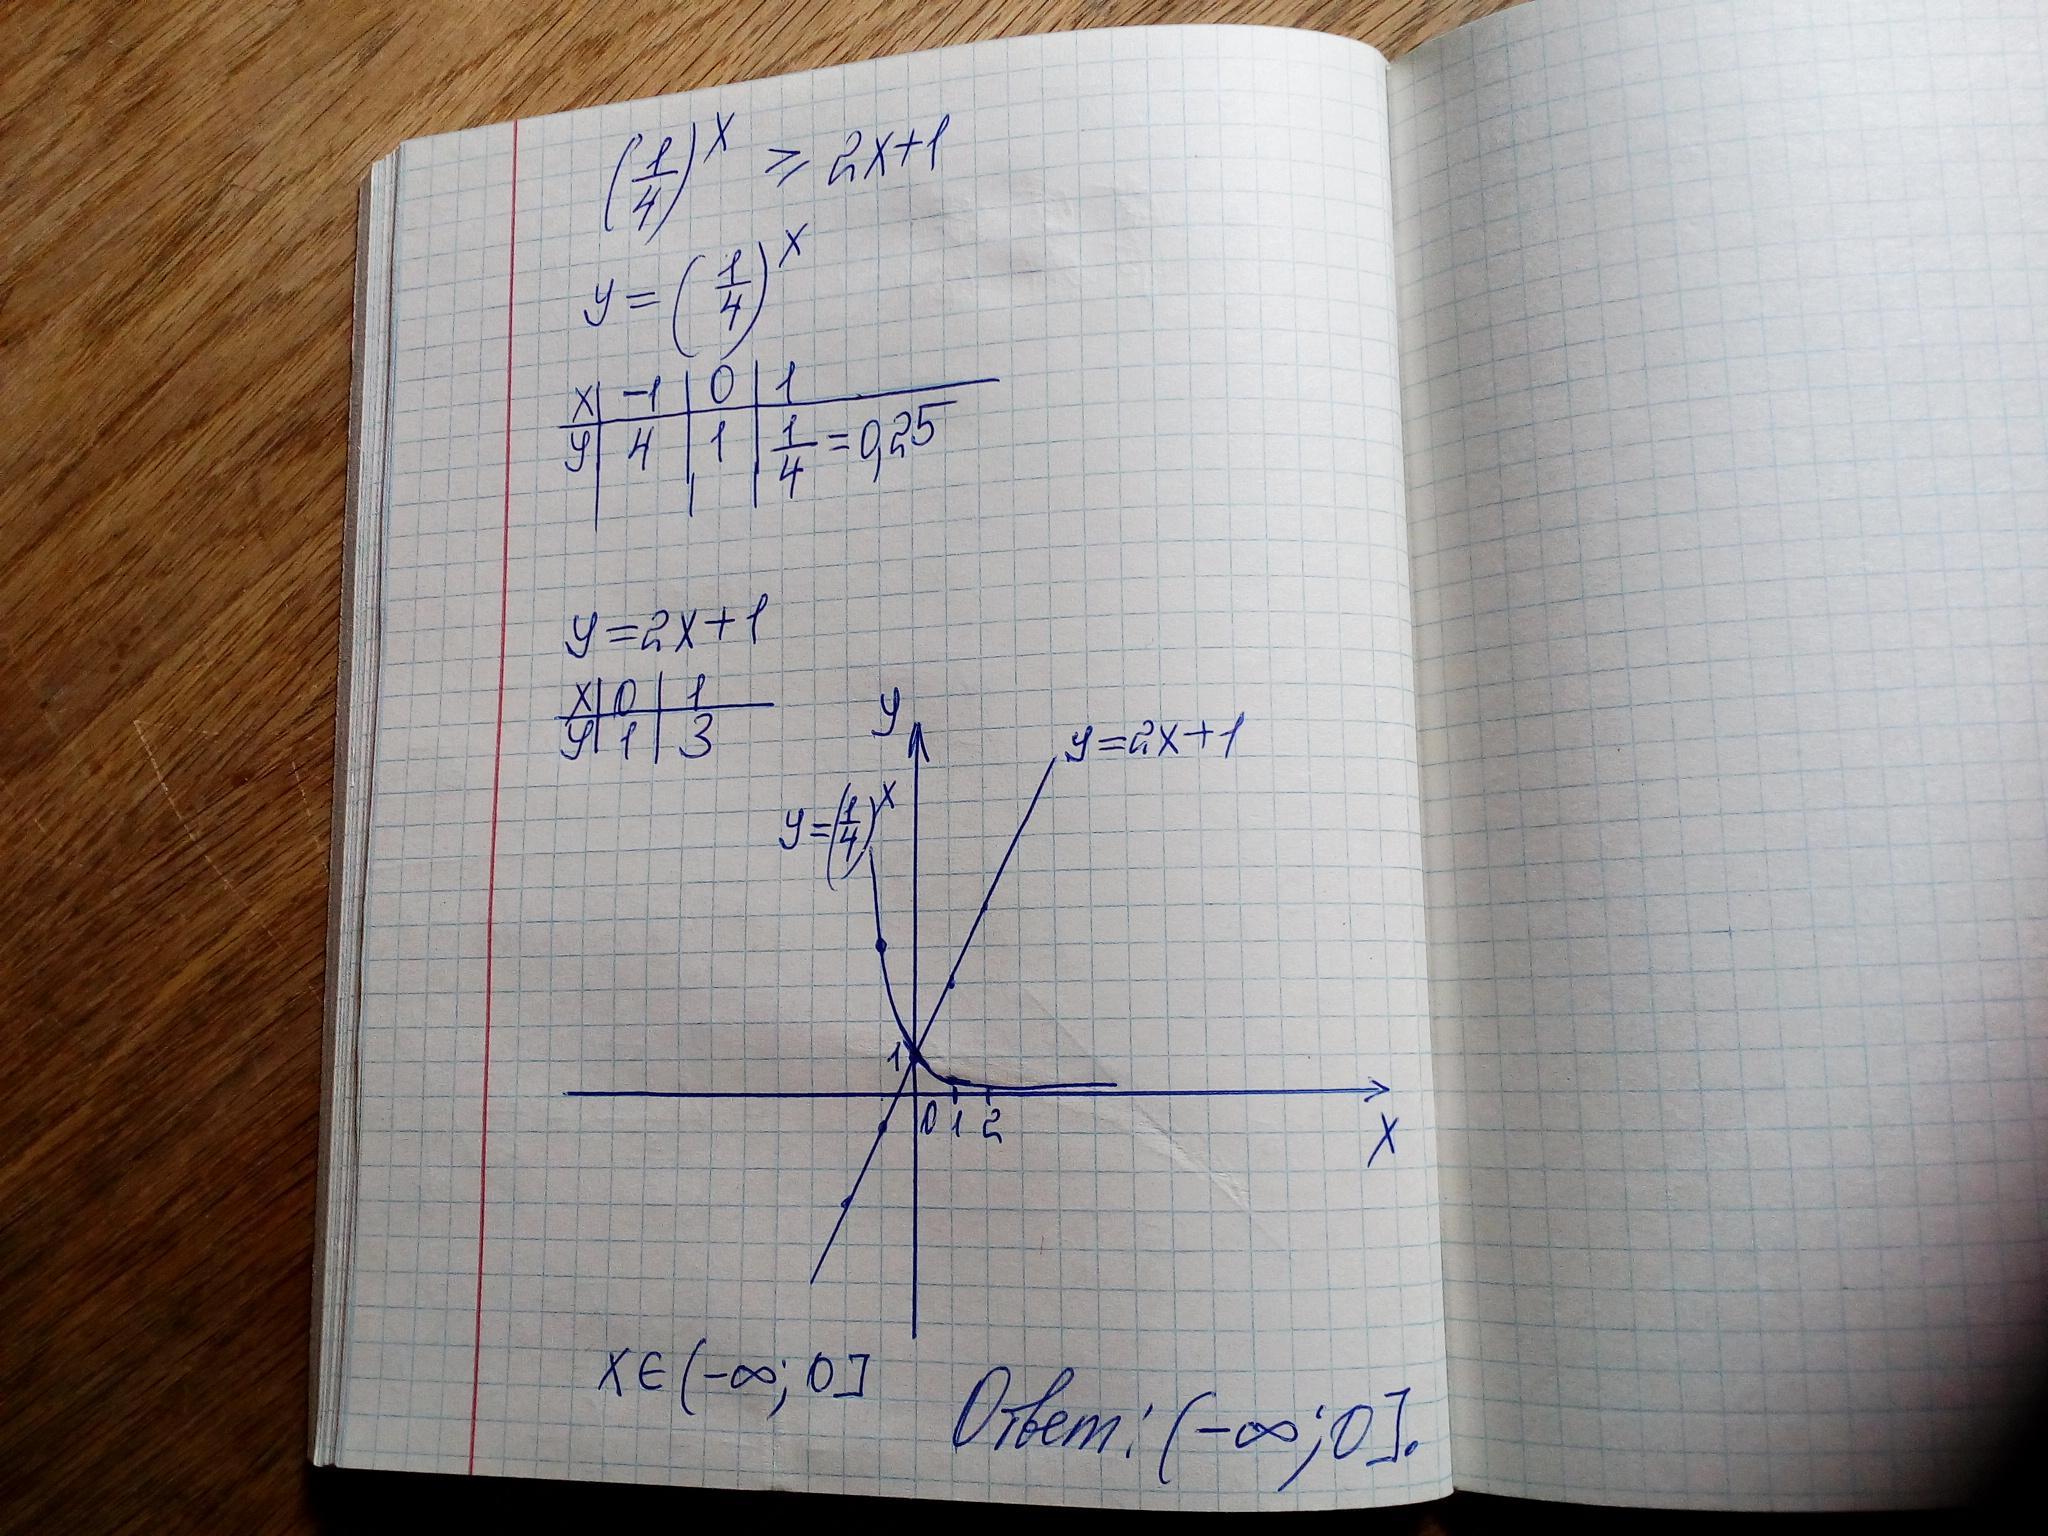 (1/4)^x ⩾ 2x+1
y = (1/4)^x
x | -1 | 0 | 1
y | 4 | 1 | 1/4 = 0,25
y = 2x+1
x | 0 | 1
y | 1 | 3
y
y=2x+1
y=(1/4)^x
1
0 1 2
x
x∈(-∞; 0]
Ответ: (-∞; 0].